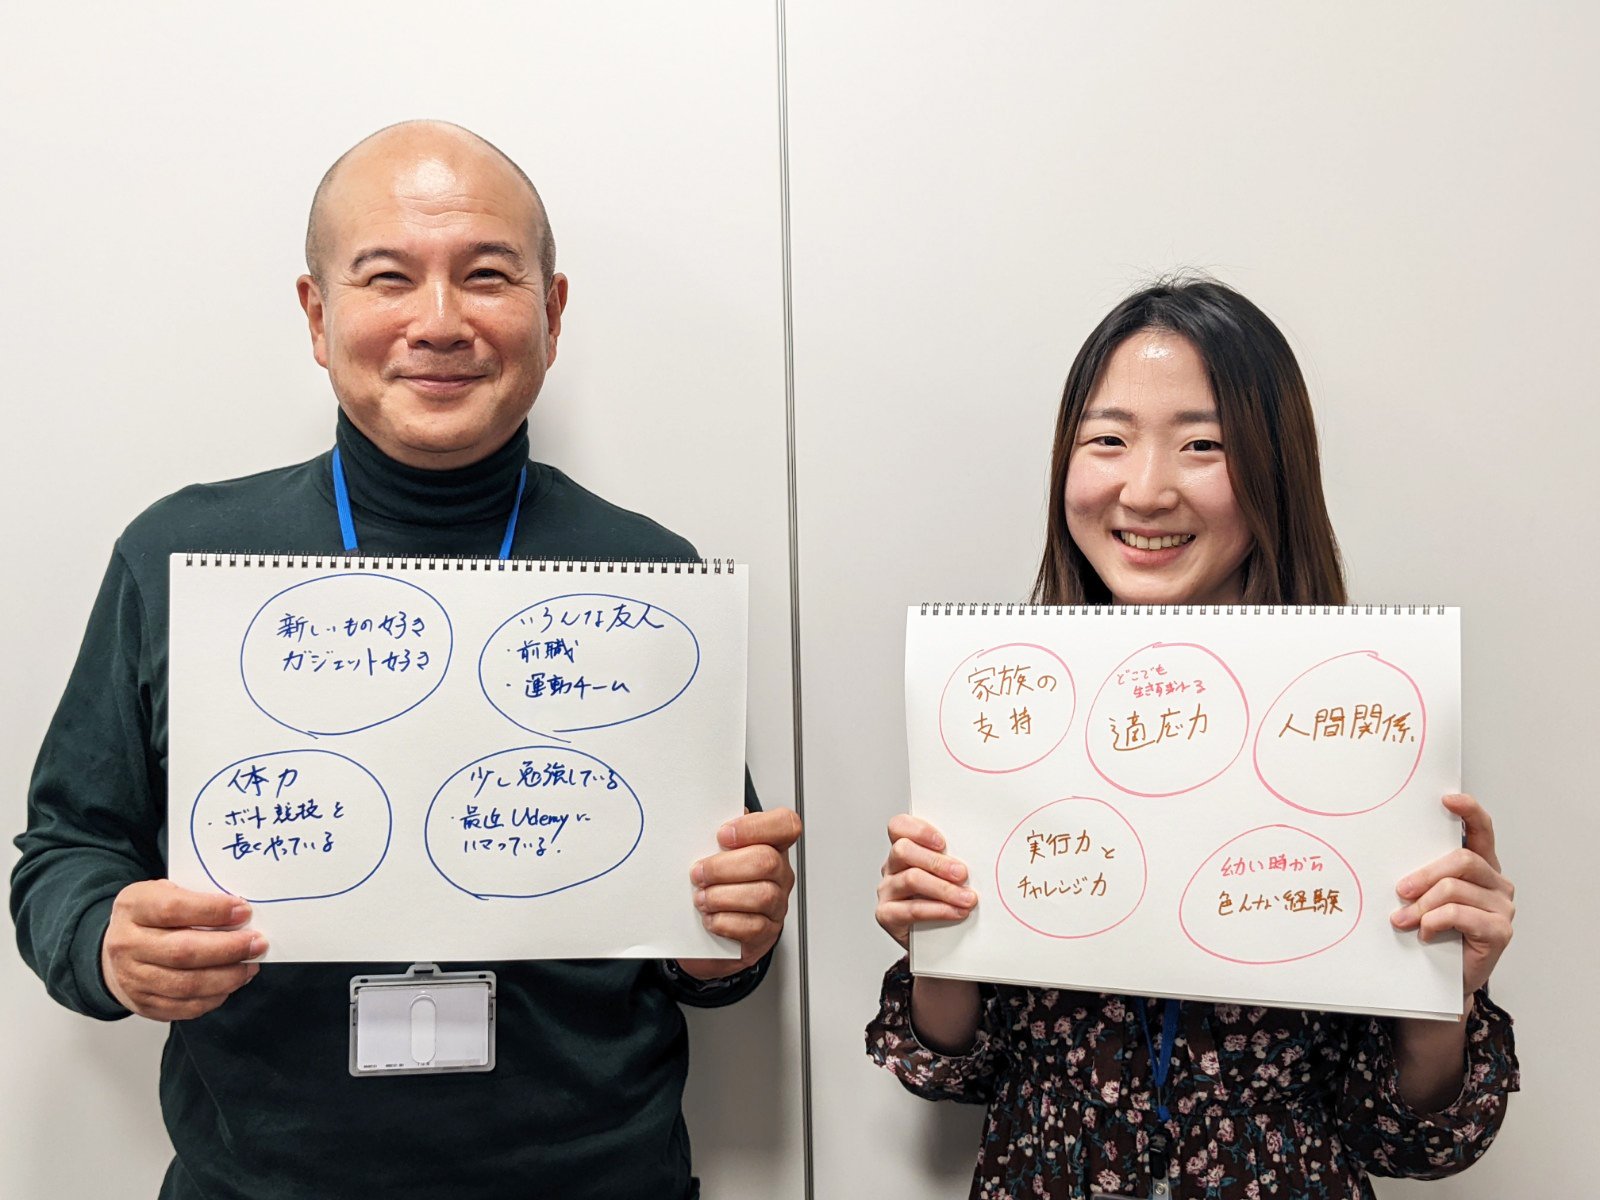 新しいもの好き
ガジェット好き
いろんな友人
・前職
・運動チーム
体力
・ボート競技を
長くやっている
少し勉強している
・最近Udemyに
ハマっている!
家族の
支持
どこでも
生き延びれる
適応力
人間関係
実行力と
チャレンジ力
幼い時から
色んな経験